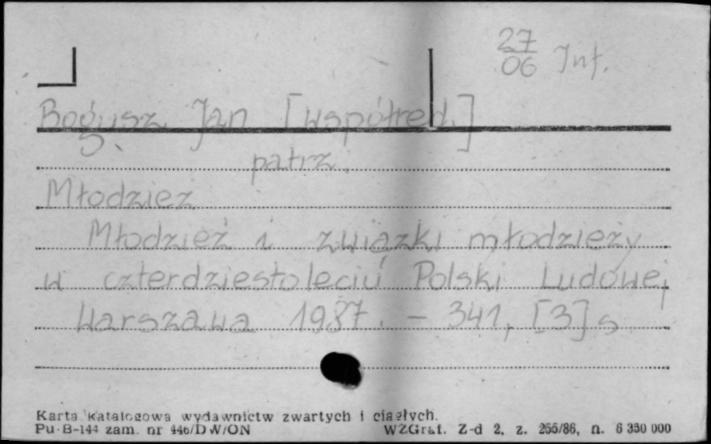 27
06 Inf.
Bogusz Jan [współred.]
patrz
Młodzież
Młodzież i związki młodzieży
w czterdziestoleciu Polski Ludowej
Warszawa 1987. – 341, [3] s
Karta katalogowa wydawnictw zwartych i ciągłych.
Pu-B-144 zam. nr 446/DW/ON WZGraf. Z-d 2, z. 255/86, n. 6 350 000